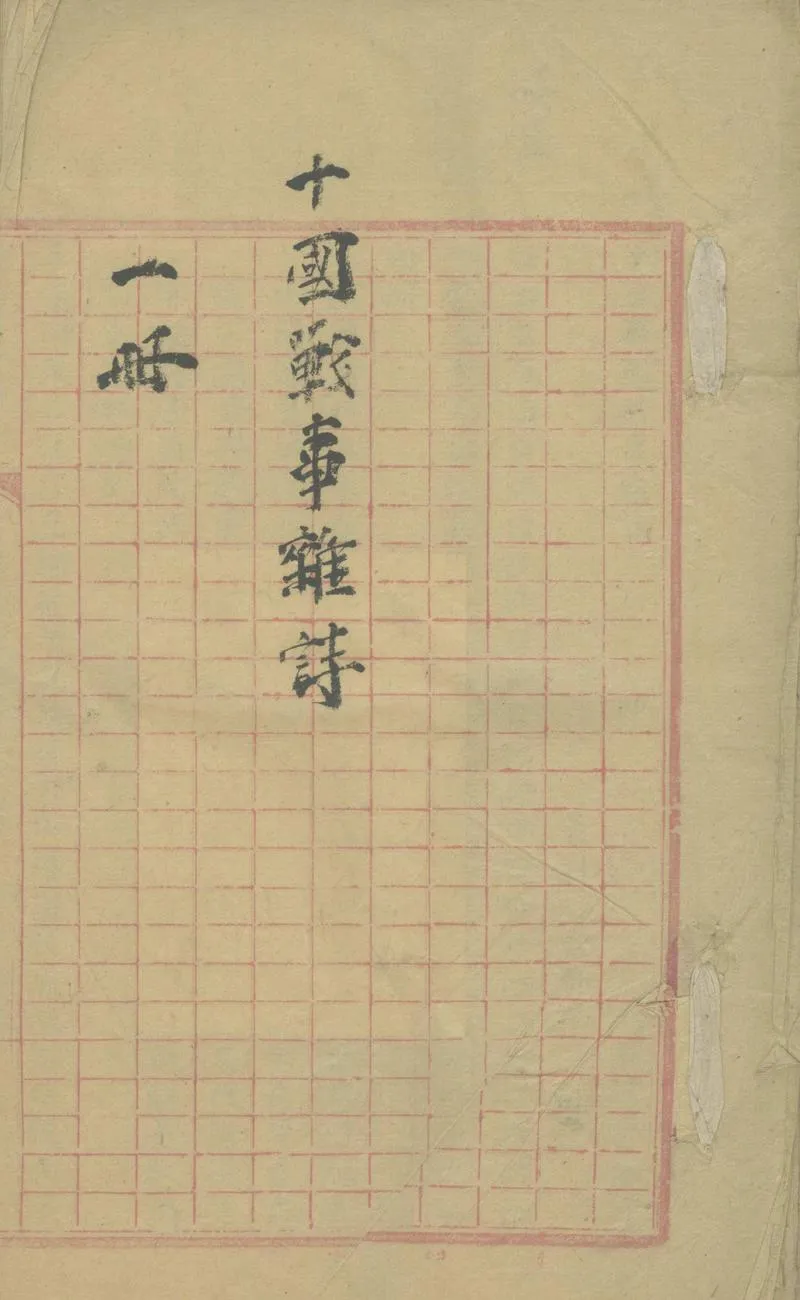 十國戰事雜誌
一冊